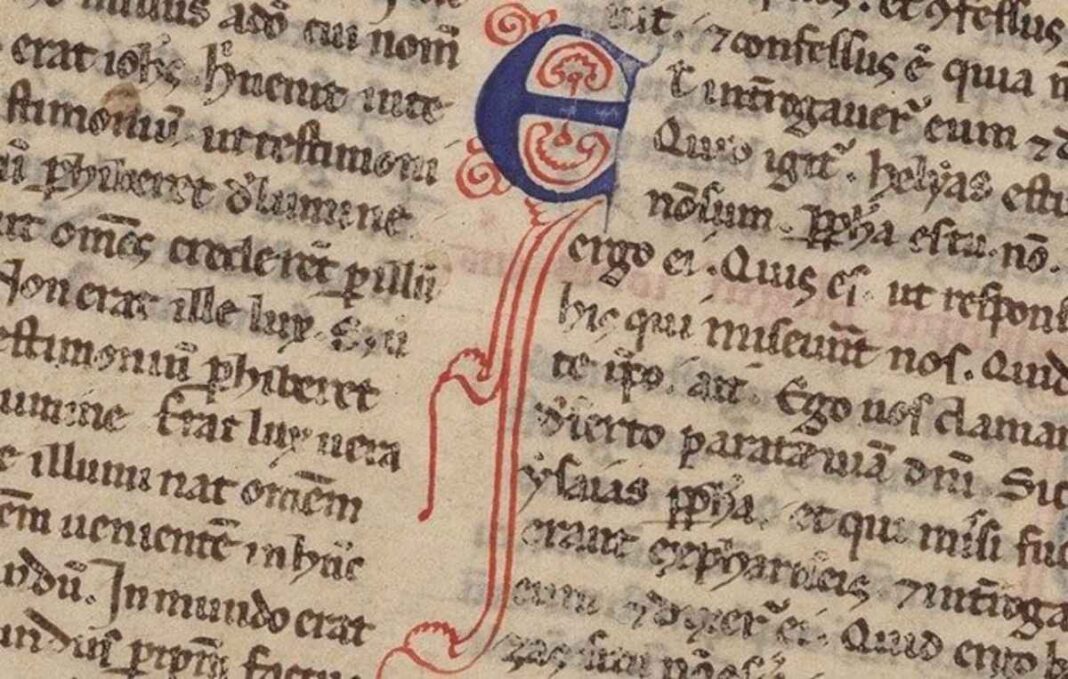 missus adō cui nom̄
erat ioħs. hic uenit inte
stimoniū. ut testimoni
ū ꝑhiberet d̄ lumine
ut om̄s crederēt ꝑ illū
Non erat ille lux. S ut
estimoniū ꝑhiberet
lumine Erat lux uera
e illuminat omēm
ēm uenientē in hūc
ndū. In mundo erat
undus ꝑ ipm̄ factus
E
nit. ⁊ confessus ē quia n
t int̄rogauer̄ eum ⁊ d
Quid igit̄. helyas estu
nō sum. ꝓpħa es tu. nō.
ergo ei. Quis es ut respons
his qui miserūnt nos. Quid
te ip̄o. ait. Ego uox claman
dserto parate uiā dn̄i Sic
ysaias ꝓpħa. et qui missi fue
erant ex phariseis ⁊ int̄roga
eum ⁊ dixer̄ ei. Quid ergo b